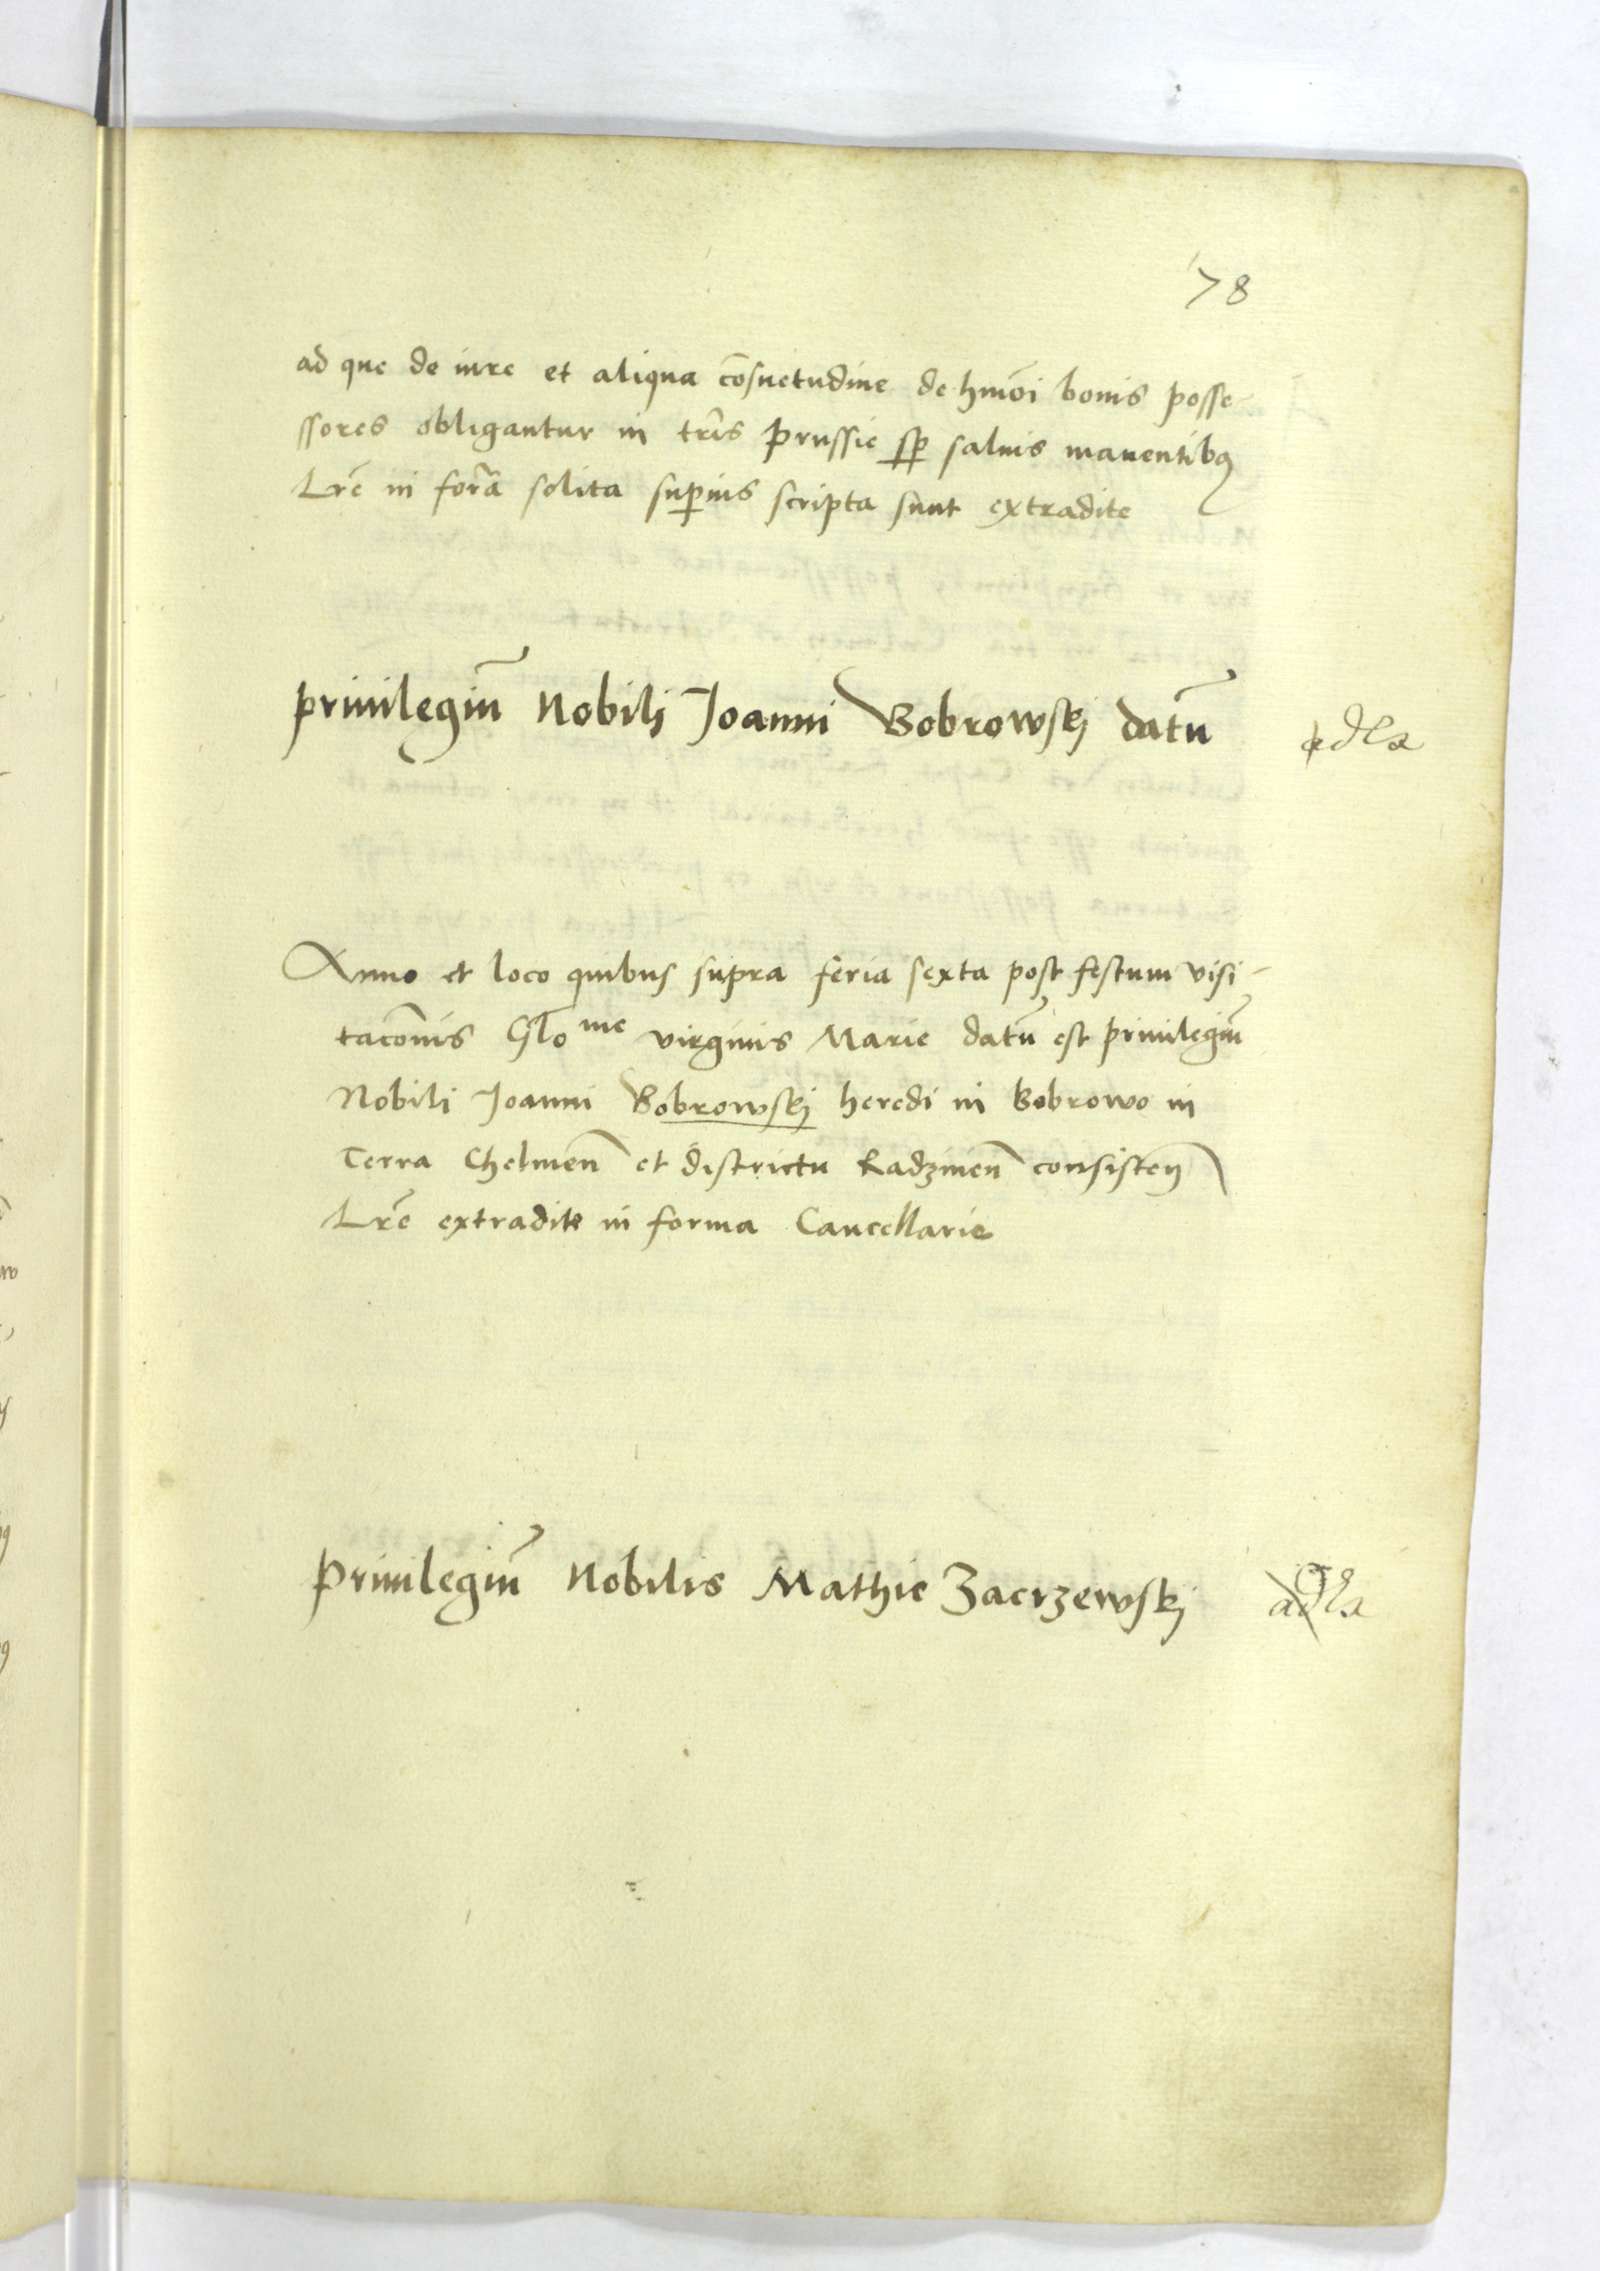 78
ad que de iure et aliqua cōsuetudine de hmōi bonis posse-
ssores obligantur in tris prussie sp saluis manentibq
Lrē in forā solita superius scripta sunt extradite
priuilegiū Nobili Joanni Bobrowskj datū
Anno et loco quibus supra feria sexta post festum visi-
tacōnis Glo me virginis Marie datū est priuilegiū
Nobili Joanni Bobrowskj heredi in Bobrowo in
Terra Chelmen et districtu Radzinen consisten
Lrē extradite in forma Cancellarie
priuilegiū Nobilis Mathie Zacrzewskj